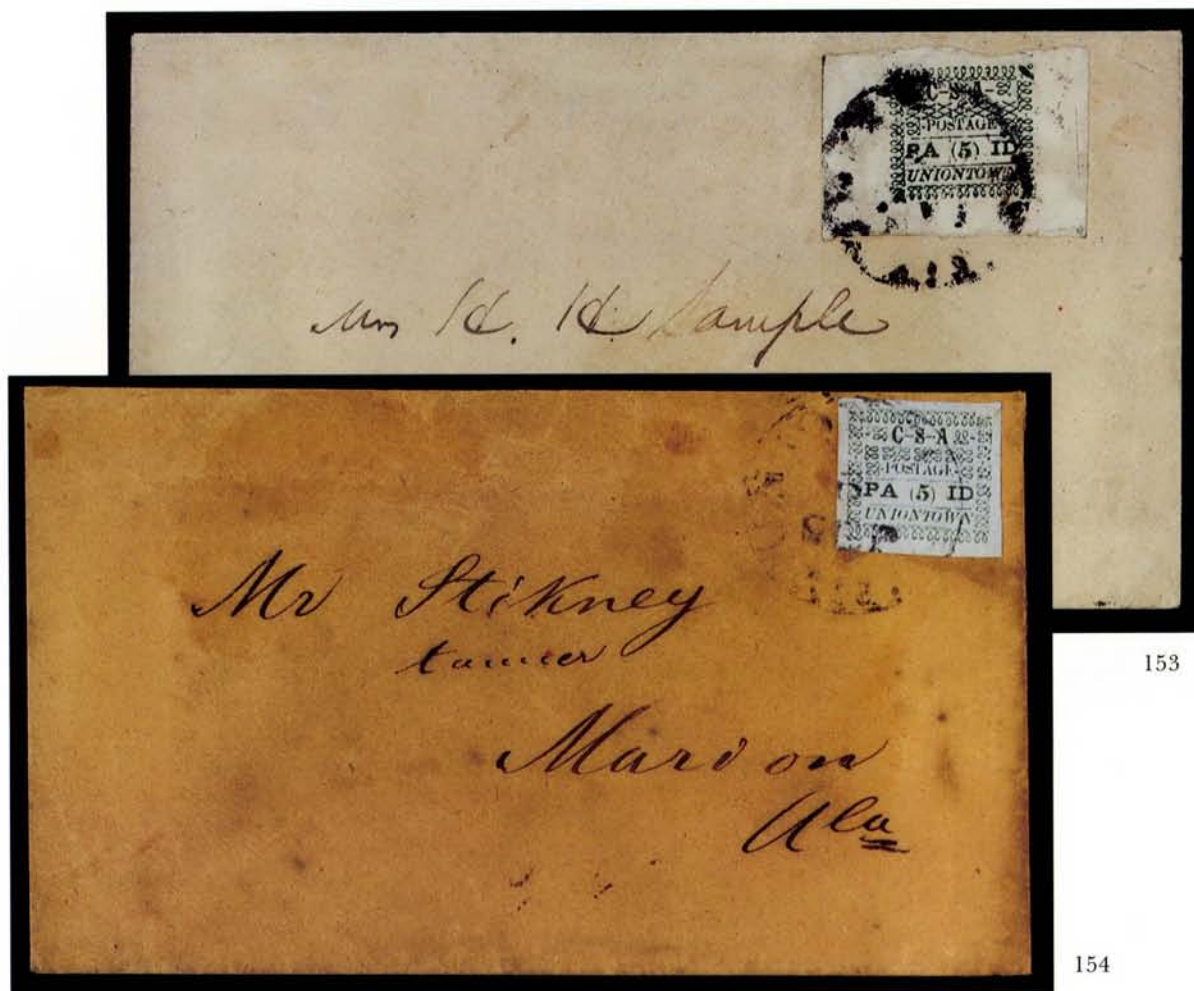 C-S-A-
-POSTAGE-
PA (5) ID
UNIONTOWN
Mrs H. H. Sample
C-S-A
-POSTAGE-
PA (5) ID
UNIONTOWN
Mr Stikney
tanner
Marion
Ala
153
154